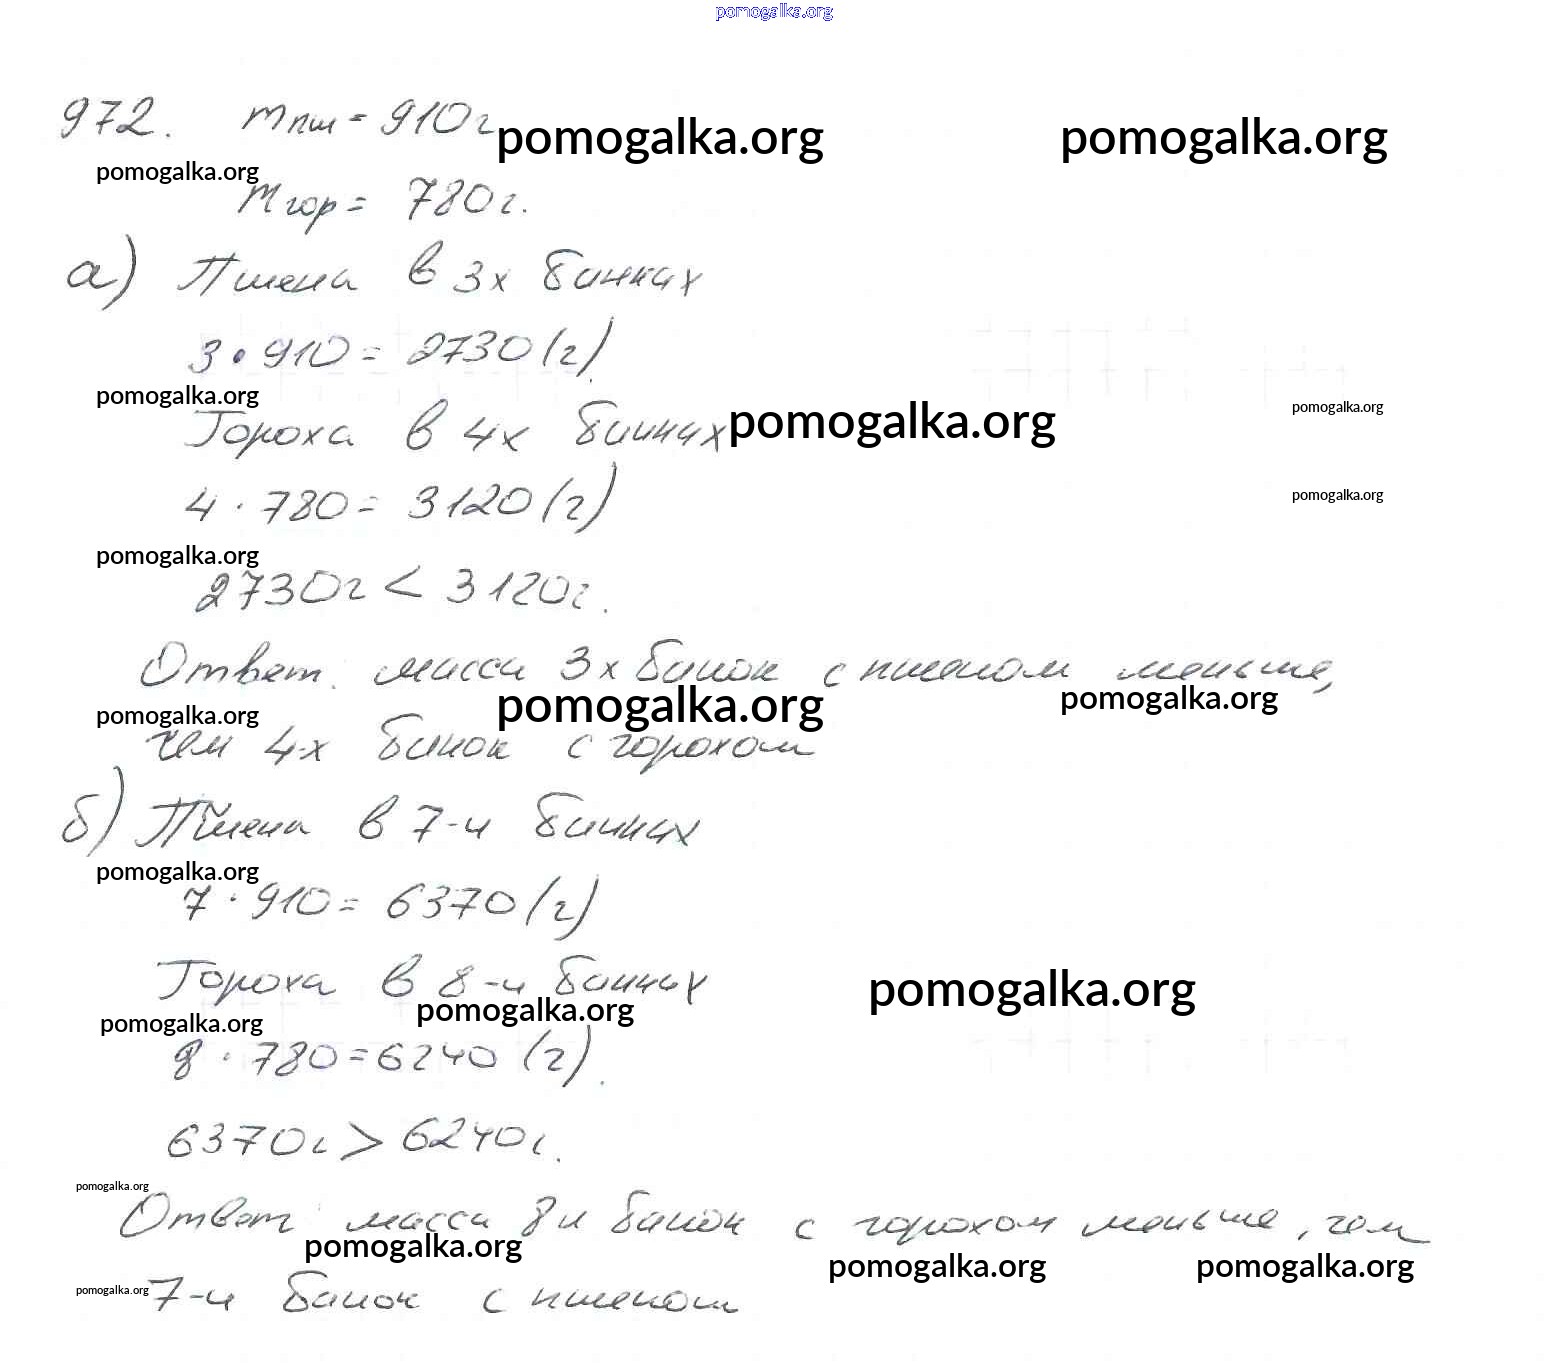 pomogalka.org
972. mпш = 910г
pomogalka.org pomogalka.org
pomogalka.org
mгор = 780г.
а) Пшена в 3х банках
3 • 910 = 2730 (г)
pomogalka.org pomogalka.org
Гороха в 4х банках
pomogalka.org
4 · 780 = 3120 (г)
pomogalka.org
pomogalka.org
2730г < 3120г.
Ответ. масса 3х банок с пшеном меньше,
pomogalka.org pomogalka.org
pomogalka.org
чем 4-х банок с горохом
б) Пшена в 7-и банках
pomogalka.org
7 · 910 = 6370 (г)
Гороха в 8-и банках
pomogalka.org
pomogalka.org pomogalka.org
8 · 780 = 6240 (г).
6370г > 6240г.
pomogalka.org
Ответ масса 8и банок с горохом меньше, чем
pomogalka.org pomogalka.org pomogalka.org
pomogalka.org
7-и банок с пшеном